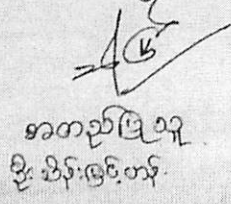 အတည်ပြုသူ
ဦးသိန်းမြင့်ဟန်